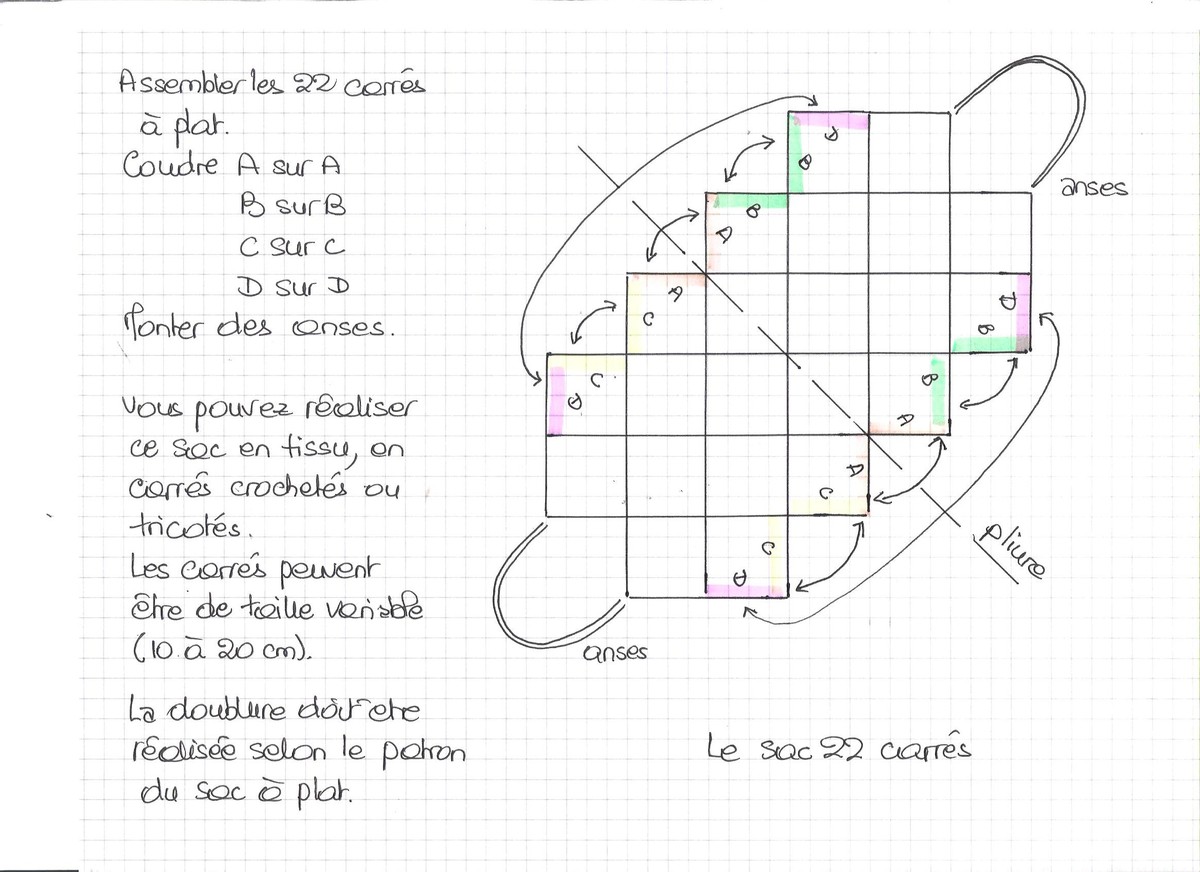 Assembler les 22 carrés
à plat.
Coudre A sur A
B sur B
C sur C
D sur D
Monter des anses.
Vous pouvez réaliser
ce sac en tissu, en
carrés crochetés ou
tricotés.
Les carrés peuvent
être de taille variable
(10 à 20 cm).
La doublure doit etre
réalisée selon le patron
du sac à plat.
D
B
anses
B
A
A
C
D
B
C
D
B
A
A
C
C
D
pliure
anses
Le sac 22 carrés